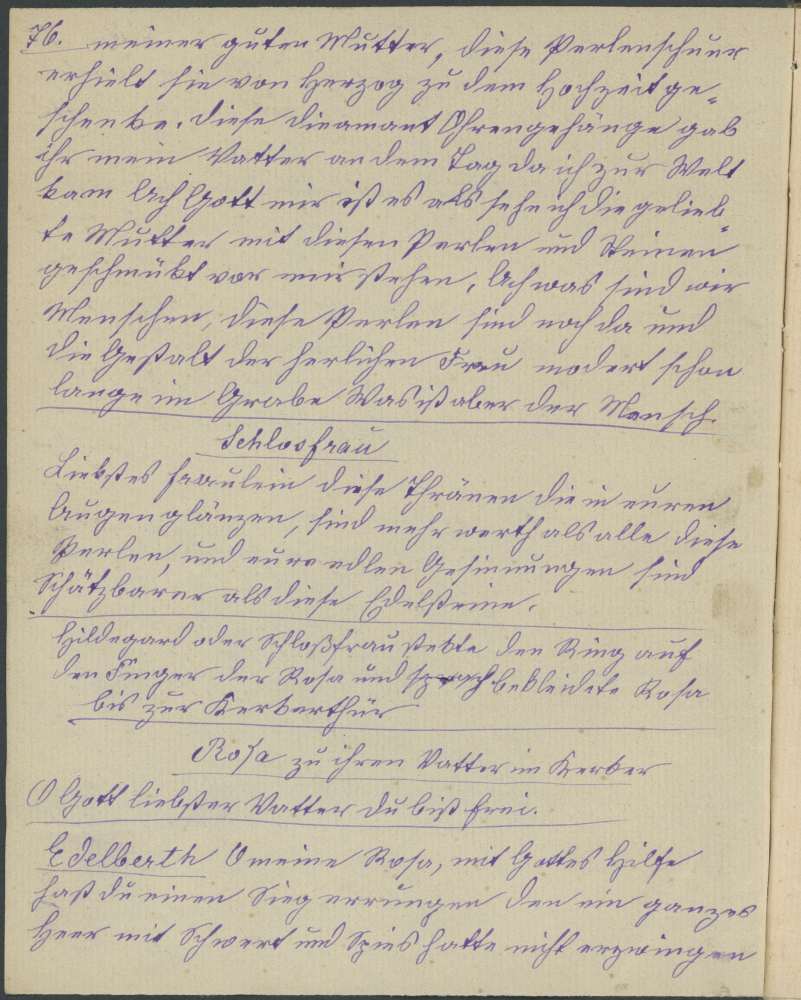 76. meiner guten Mutter, diese Perlenschnur
erhielt sie von Herzog zu dem Hochzeit ge„
schenke. Diese dieamant Ohrengehänge gab
ihr mein Vatter an dem Tag da ich zur Welt
kam Ach Gott mir ist es als sehe ich die gelieb„
te Mutter mit diesen Perlen und Steinen
geschmükt vor mir stehen, Ach was sind wir
Menschen, diese Perlen sind noch da und
die Gestalt der herlichen Frau modert schon
lange im Grabe Was ist aber der Mensch.
Schlosfrau
Liebstes fraulein diese Thränen die in euren
Augen glänzen, sind mehr werth als alle diese
Perlen, und eure edlen Gesinnungen sind
Schätzbarer als diese Edelsteine.
Hildegard oder Schloßfrau stekte den Ring auf
den Finger der Rosa und sprach bekleidete Rosa
bis zur Kerkerthür
Rosa zu ihren Vatter im Kerker
O Gott liebster Vatter du bist frei.
Edelberth O meine Rosa, mit Gottes Hilfe
hast du einen Sieg errungen den ein ganzes
Heer mit Schwert und Spies hatte nicht erzwingen